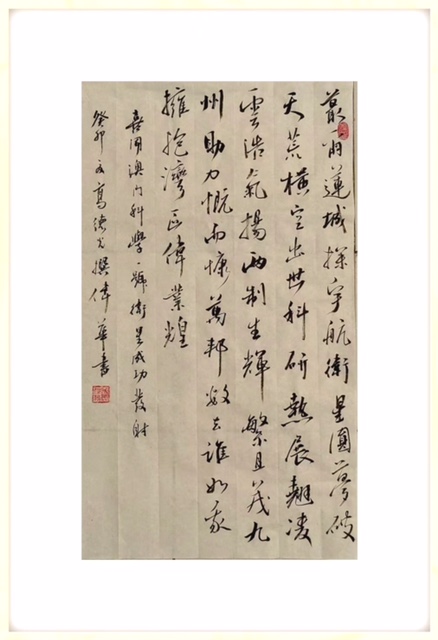 蕞爾蓮城探宇航衛星圓夢破
天荒橫空出世科研熱展翹凌
雲浩氣揚兩制生輝繁且茂九
州助力慨而慷萬邦數去誰如我
擁抱灣區偉業煌
喜聞澳門科學一號衛星成功發射
癸卯撰偉華書